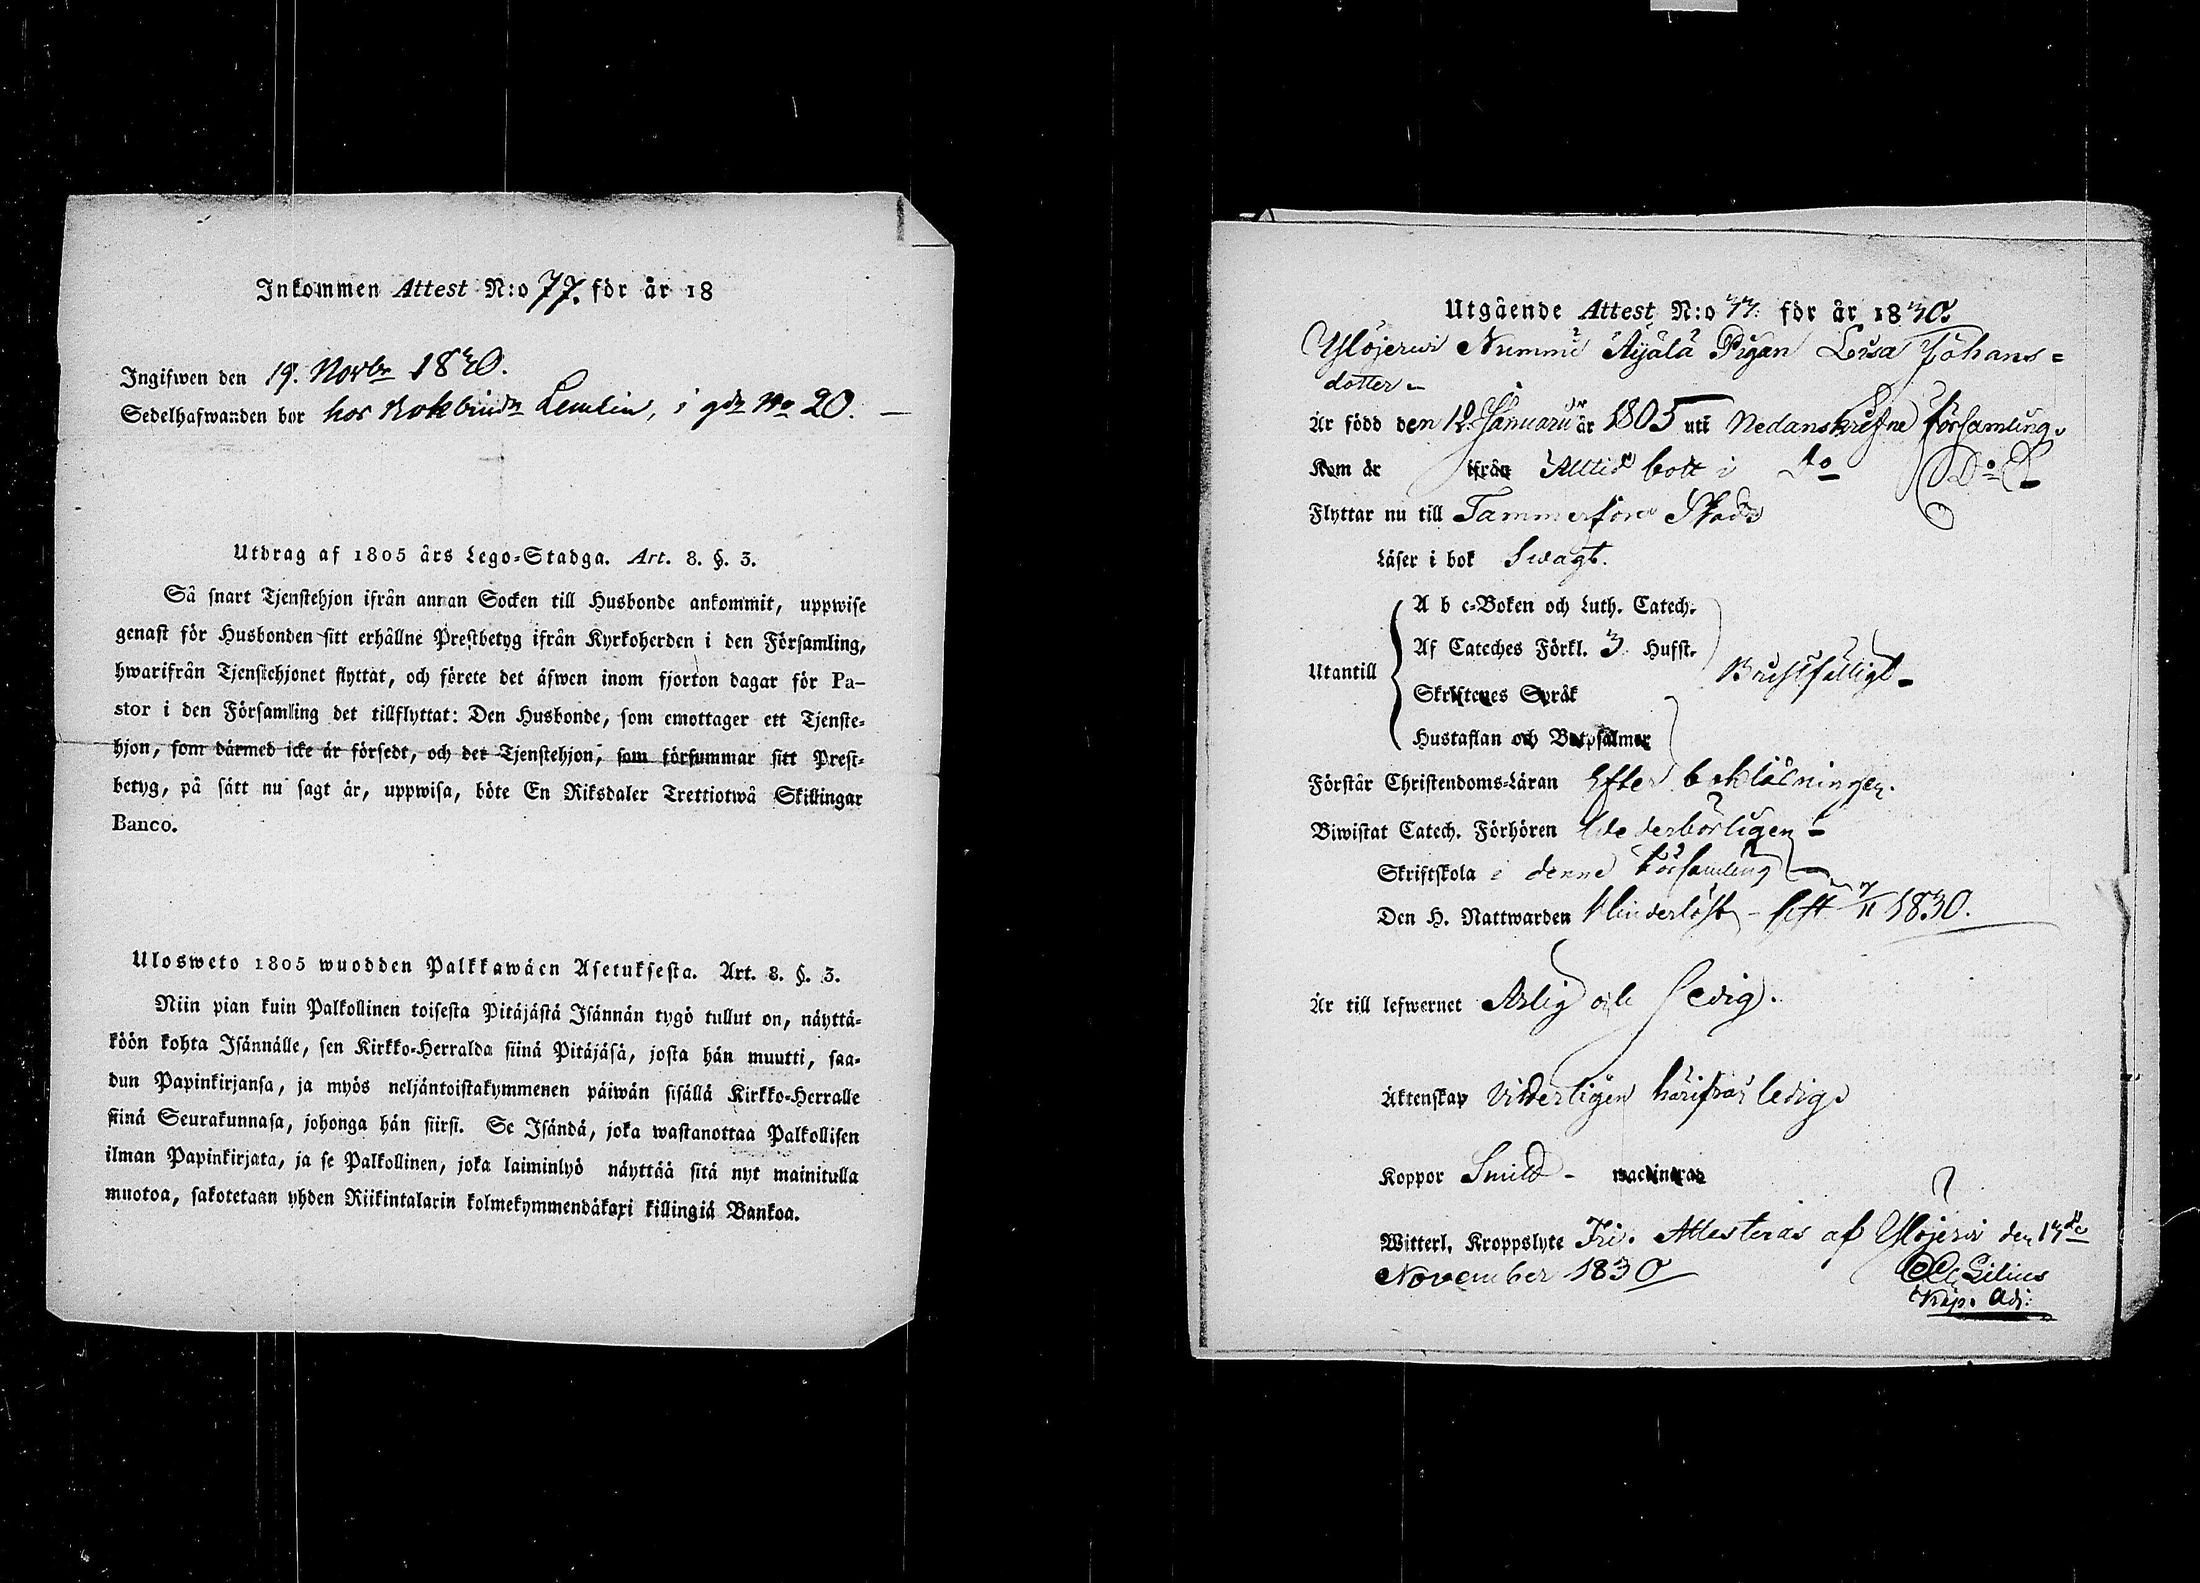 Inkommen Attest N:o 77. för år 18
Ingifwen den 19. Novbr 1830.
Sedelhafwanden bor hos Bokbindn Lemlin, i gdn No 20. —
Utdrag af 1805 års Lego-Stadga. Art. 8. §. 3.
Så snart Tjenstehjon ifrån annan Socken till Husbonde ankommit, uppwise
genast för Husbonden sitt erhållne Prestbetyg ifrån Kyrkoherden i den Församling,
hwarifrån Tjenstehjonet flyttat, och förete det äfwen inom fjorton dagar för Pa-
stor i den Församling det tillflyttat: Den Husbonde, som emottager ett Tjenste-
hjon, som därmed icke är försedt, och det Tjenstehjon, som försummar sitt Prest-
betyg, på sätt nu sagt är, uppwisa, böte En Riksdaler Trettiotwå Skillingar
Banco.
Ulosweto 1805 wuodden Palkkawäen Asetuksesta. Art. 8. §. 3.
Niin pian kuin Palkollinen toisesta Pitäjästä Isännän tygö tullut on, näyttä-
köön kohta Isännälle, sen Kirkko-Herralda siinä Pitäjäsä, josta hän muutti, saa-
dun Papinkirjansa, ja myös neljäntoistakymmenen päiwän sisällä Kirkko-Herralle
siinä Seurakunnasa, johonga hän siirsi. Se Isändä, joka wastanottaa Palkollisen
ilman Papinkirjata, ja se Palkollinen, joka laiminlyö näyttää sitä nyt mainitulla
muotoa, sakotetaan yhden Riikintalarin kolmekymmendäkaxi killingiä Bankoa.
Utgående Attest N:o 33. för år 1830.
Ylöjerwi Nummi Äijälä Pigan Lisa Johans=
dotter -
Är född den 12. Januarii år 1805 uti Nedanskrefne församling.
Kom år ifrån Alltid bott i do Do
Flyttar nu till Tammerfors Stad
Läser i bok Swagt.
Utantill
A b c-Boken och Luth. Catech.
Af Cateches Förkl. 3 Hufst.
Skriftenes Språk
Hustaflan och Botpsalmer
Bristfälligt -
Förstår Christendoms-Läran Efter beklädningen.
Biwistat Catech. Förhören Wederbörligen -
Skriftskola i denna församling -
Den H. Nattwarden Hinderlöst - sist 7/11 1830.
Är till lefwernet Ärlig och ledig.
Äktenskap Vitterligen härifrån ledig
Koppor Smitt - vaccinerad
Witterl. Kroppslyte Fri. Attesteras af Ylöjervi den 13de
November 1830
Lilius
Kap. Adj: